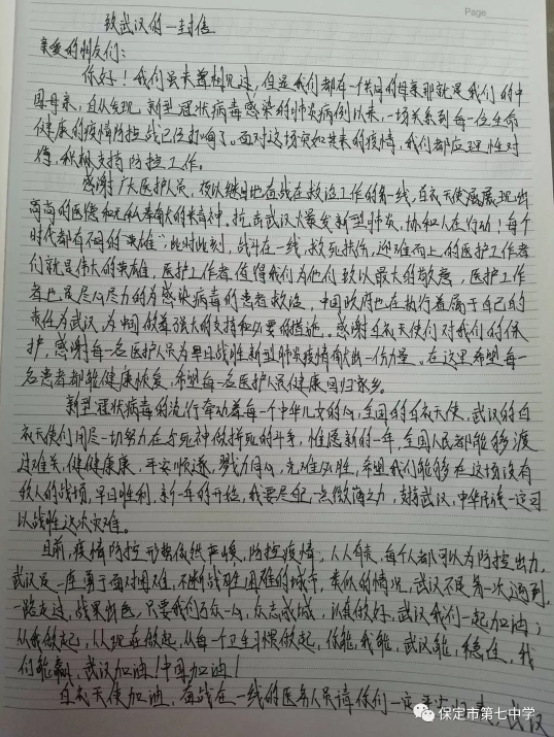 Page
致武汉的一封信
亲爱的朋友们：
你好！我们虽未曾相见过，但是我们都有一个共同的母亲那就是我们的中
国母亲，自从发现新型冠状病毒感染的肺炎病例以来，一场关系到每一位生命
健康的疫情防控战已经打响了。面对这场突如其来的疫情，我们都应理性对
待，积极支持防控工作。
感谢广大医护人员，夜以继日地奋战在救治工作的第一线，白衣天使展现出
高尚的医德和无私奉献的精神。抗击武汉大爆发新型肺炎，协和人在行动！每个
时代都有不同的“英雄”，此时此刻，战斗在一线，救死扶伤，迎难而上的医护工作者
们就是伟大的英雄，医护工作者值得我们为他们致以最大的敬意，医护工作
者也是尽心尽力的为感染病毒的患者救治，中国政府也在执行着属于自己的
责任为武汉，为中国做着强大的支持和必要的措施。感谢白衣天使们对我们的保
护，感谢每一名医护人员为早日战胜新型肺炎疫情献出一份力量。在这里希望每一
名患者都能健康恢复，希望每一名医护人员健康回归家乡。
新型冠状病毒的流行牵动着每一个中华儿女的心，全国的白衣天使，武汉的白
衣天使们用尽一切努力在与死神做拼死的斗争，惟愿新的一年，全国人民都能够渡
过难关，健健康康，平安顺遂，戮力同心，克难必胜，希望我们能够在这场没有
敌人的战场，早日胜利，新一年的开始，我要尽起一点微薄之力，支持武汉，中华民族一定可
以战胜这次灾难。
目前，疫情防控形势依然严峻，防控疫情，人人有责，每个人都可以为防控出力，
武汉是一座勇于面对困难，不断战胜困难的城市，类似的情况，武汉不是第一次遇到，
一路走过，战果出色，只要我们万众一心，众志成城，认真做好，武汉我们一起加油；
从我做起，从现在做起，从每个卫生习惯做起，你能，我能，武汉能，稳住，我
们能赢，武汉加油！中国加油！
白衣天使加油，奋战在一线的医务人员请你们一定
武汉
保定市第七中学